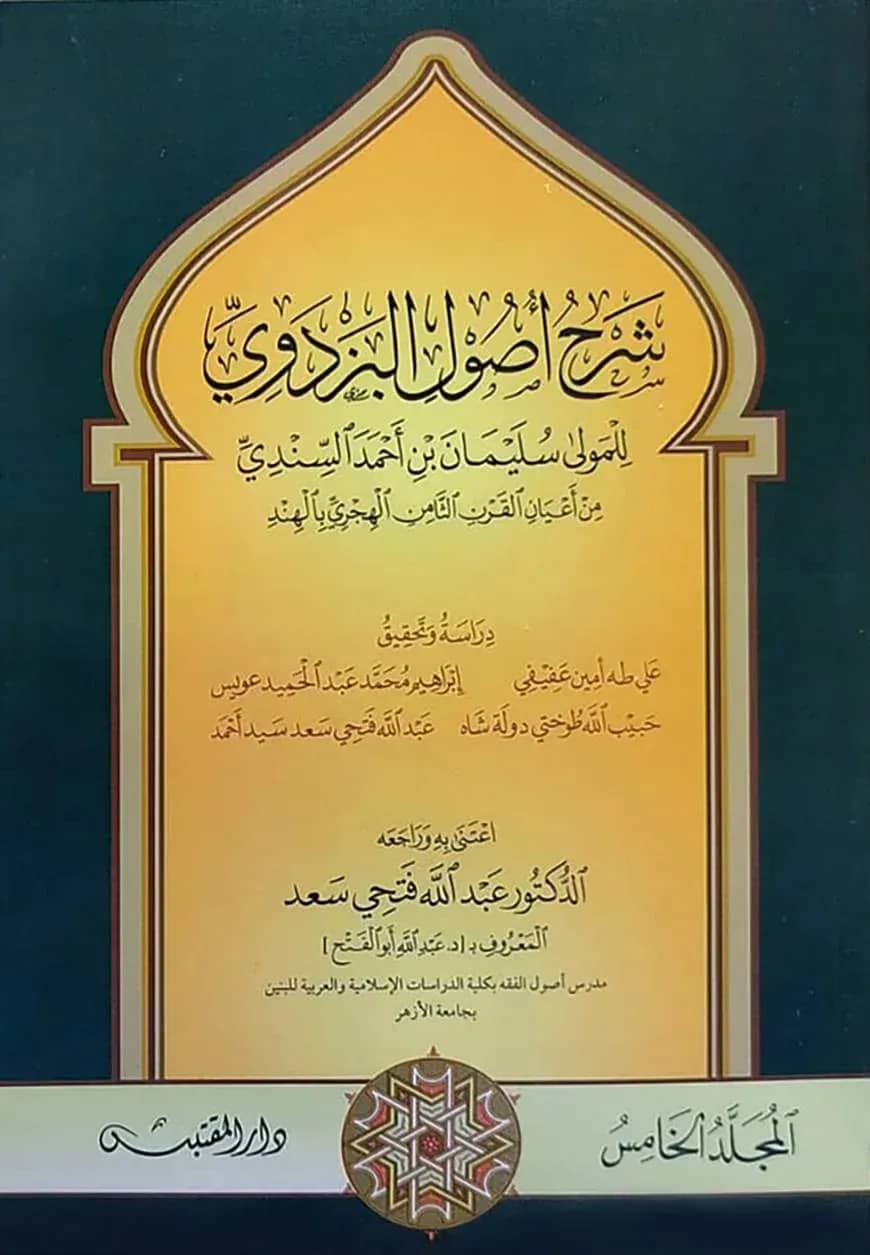 شَرْحُ أُصُولِ الْبَزْدَوِيِّ
لِلْمَوْلَى سُلَيْمَانَ بْنِ أَحْمَدَ السِّنْدِيِّ
مِنْ أَعْيَانِ الْقَرْنِ الثَّامِنِ الْهِجْرِيِّ بِالْهِنْدِ
دِرَاسَةُ وَتَحْقِيقُ
عَلي طه أمِين عَفِيْفِي إبْرَاهِيم مُحَمَّد عَبْد الْحَمِيد عويس
حَبِيْب اللَّه طُوختي دولَة شَاه عَبْد اللَّه فَتْحِي سَعد سَيد أحْمَد
اعْتَنَى بِهِ وَرَاجَعَه
الدُّكتُور عَبْد اللَّه فَتْحِي سَعد
الْمَعْرُوف بـ [د. عَبْدِ اللَّهِ أبو الْفَتْح]
مدرس أصول الفقه بكلية الدراسات الإسلامية والعربية للبنين
بجامعة الأزهر
الْمُجَلَّدُ الْخَامِسُ
دار المقتبس